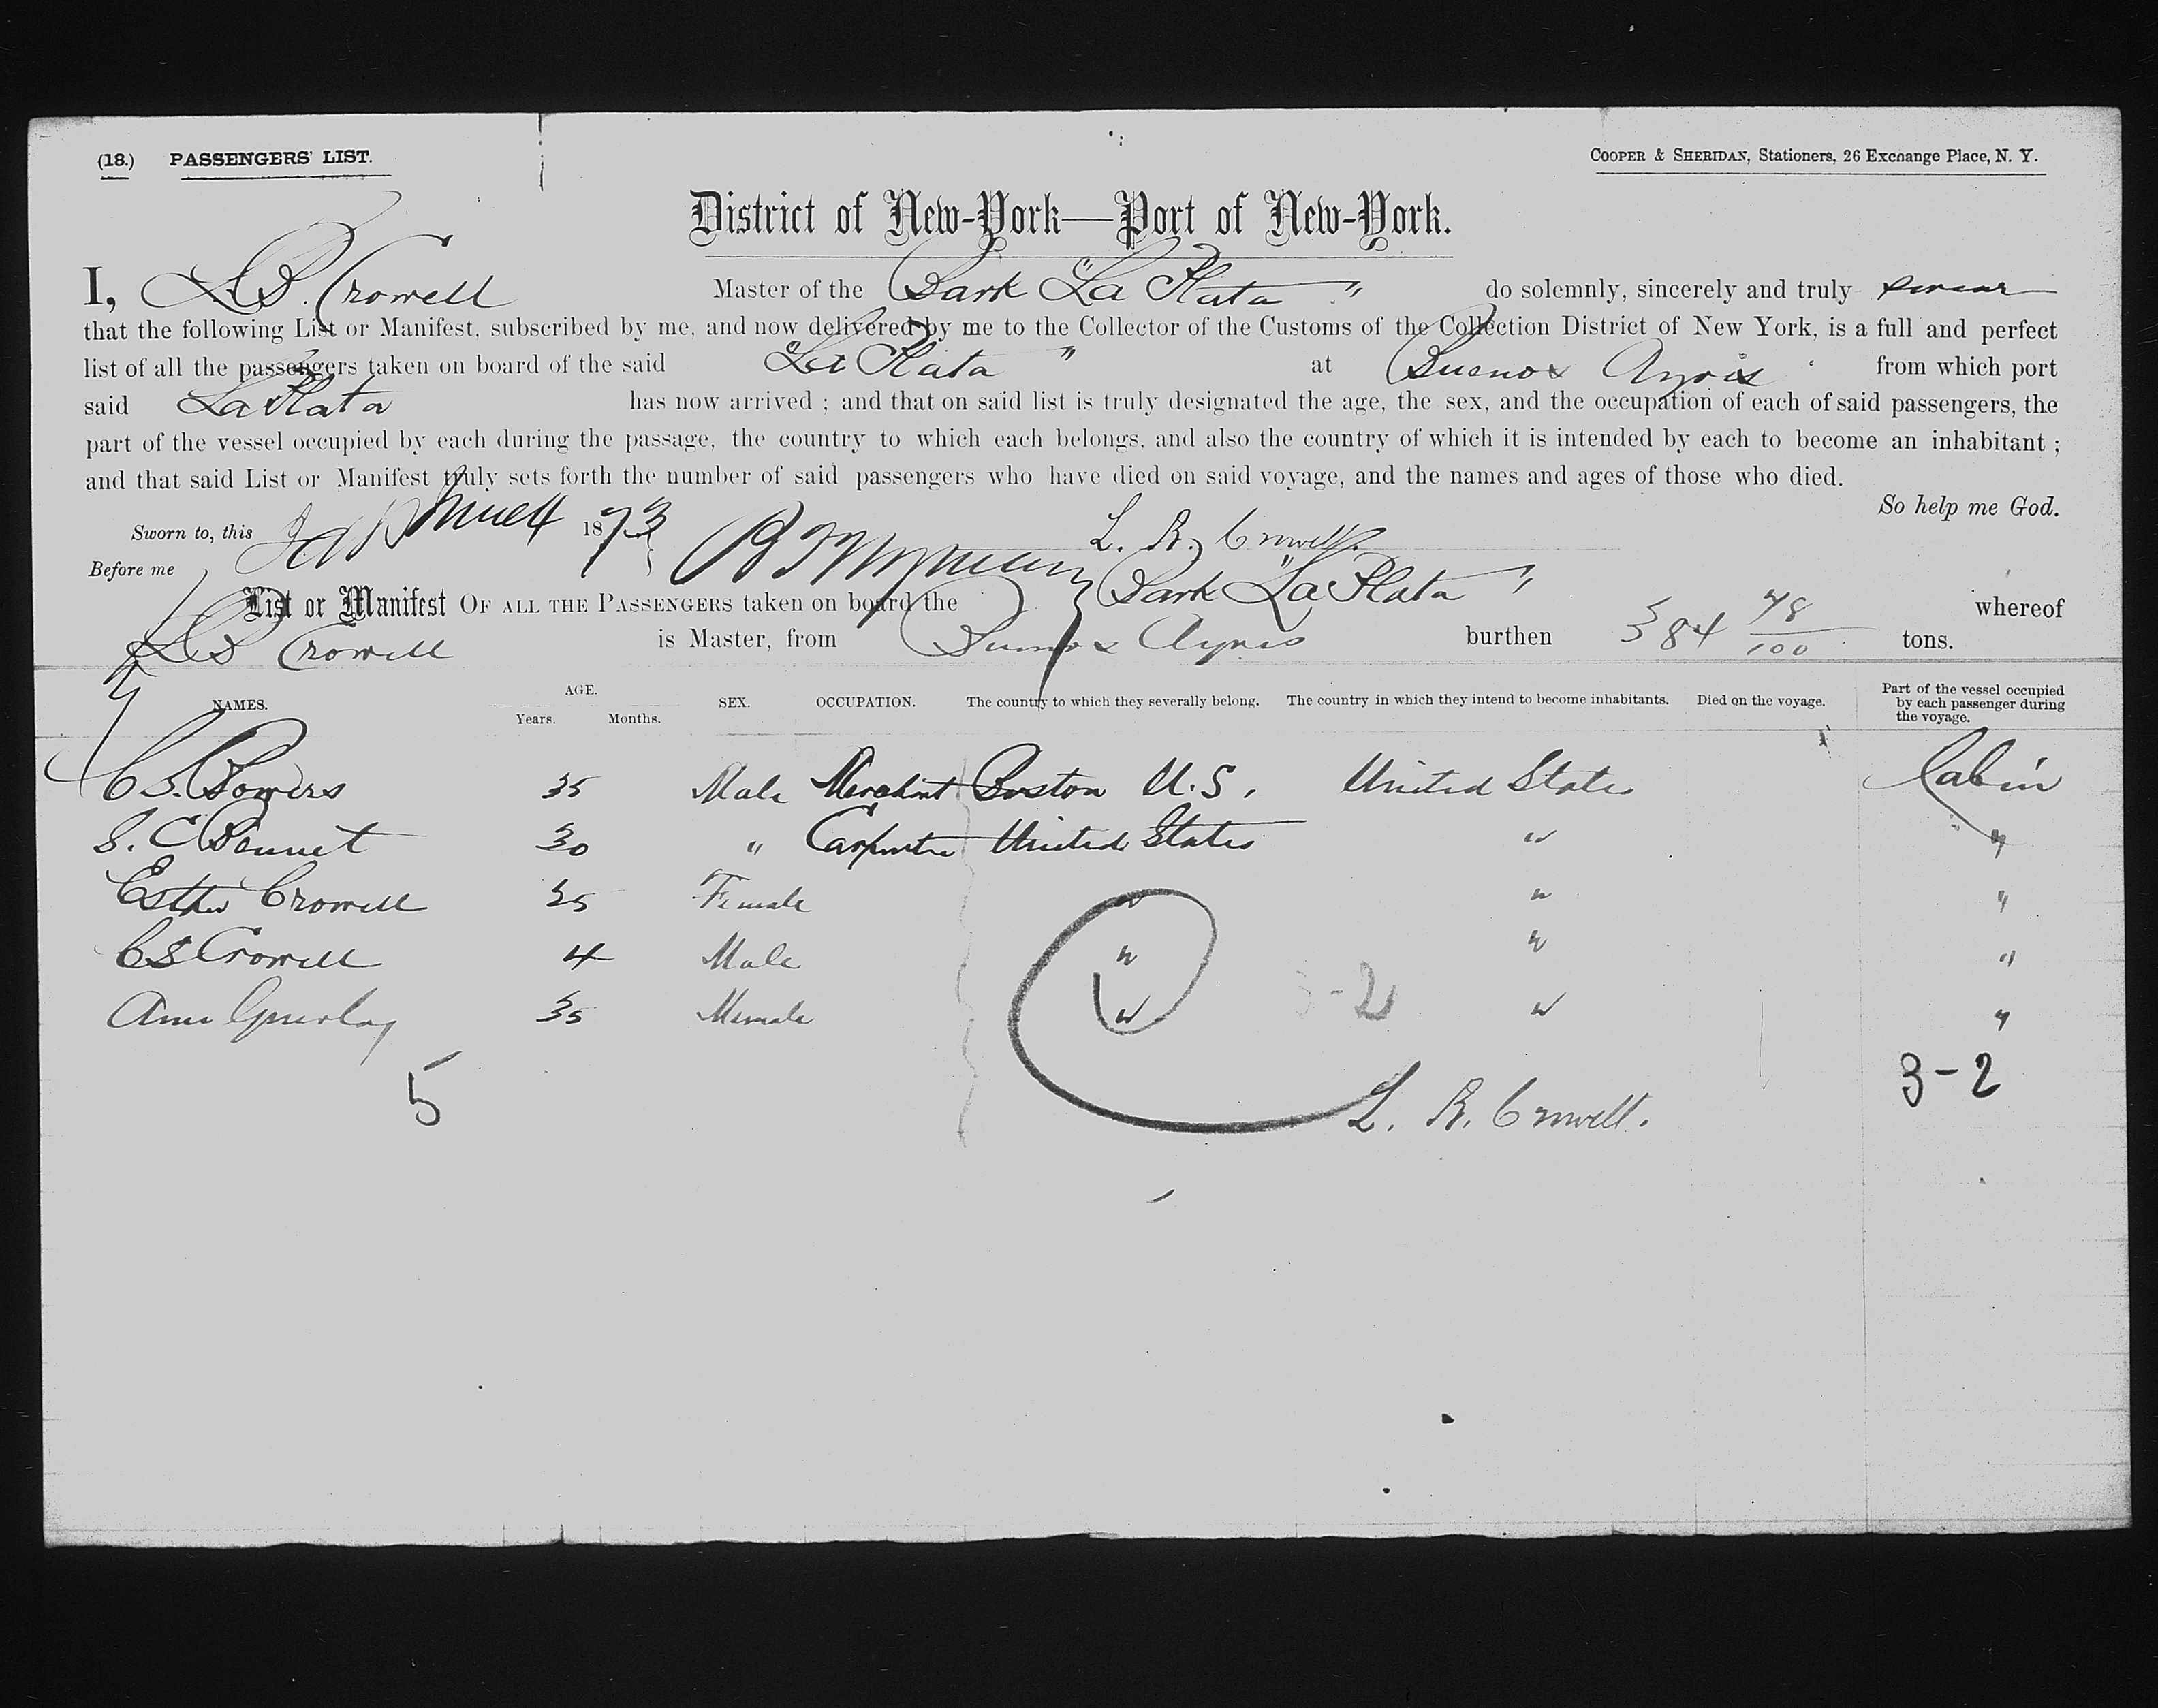 (18.) PASSENGERS' LIST.
COOPER & SHERIDAN, Stationers, 26 Exchange Place, N. Y.
District of New-York—Port of New-York.
I, L B. Crowell Master of the Bark "La Plata" do solemnly, sincerely and truly swear
that the following List or Manifest, subscribed by me, and now delivered by me to the Collector of the Customs of the Collection District of New York, is a full and perfect
list of all the passengers taken on board of the said "La Plata" at Buenos Ayres from which port
said La Plata has now arrived ; and that on said list is truly designated the age, the sex, and the occupation of each of said passengers, the
part of the vessel occupied by each during the passage, the country to which each belongs, and also the country of which it is intended by each to become an inhabitant ;
and that said List or Manifest truly sets forth the number of said passengers who have died on said voyage, and the names and ages of those who died.
So help me God.
Sworn to, this 1873 L. B. Crowell.
Before me
List or Manifest OF ALL THE PASSENGERS taken on board the Bark "La Plata" whereof
L B Crowell is Master, from Buenos Ayres burthen 384 48/100 tons.
NAMES. AGE. Years. Months. SEX. OCCUPATION. The country to which they severally belong. The country in which they intend to become inhabitants. Died on the voyage. Part of the vessel occupied by each passenger during the voyage.
C S. Bowers 35 Male Merchant Boston U.S. United States Cabin
S. C Bennet 30 " Carpenter United States " "
Esther Crowell 25 Female " " "
C S Crowell 4 Male " " "
Ann 35 Female " " "
3-2
5
3-2
L. B. Crowell.